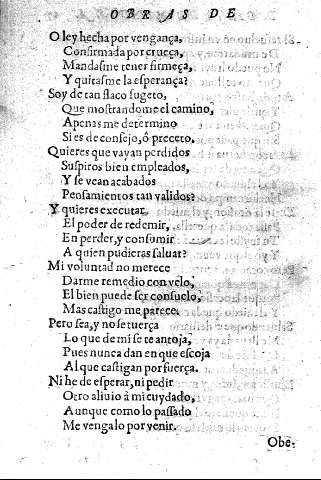 OBRAS DE
O ley hecha por vengança,
Confirmada por crueça,
Mandasme tener firmeça,
Y quitasme la esperança?
Soy de tan flaco sugeto,
Que mostrandome el camino,
Apenas me determino
Si es de consejo, ô preceto.
Quieres que vayan perdidos
Suspiros bien empleados,
Y se vean acabados
Pensamientos tan validos?
Y quieres executar
El poder de redemir,
En perder, y consumir
A quien pudieras saluar?
Mi voluntad no merece
Darme remedio con yelo,
El bien puede ser consuelo,
Mas castigo me parece.
Pero sea, y no se tuerça
Lo que de mi se te antoja,
Pues nunca dan en que escoja
Al que castigan por fuerça.
Ni he de esperar, ni pedir
Otro aliuio à mi cuydado,
Aunque como lo passado
Me venga lo por venir.
Obe-